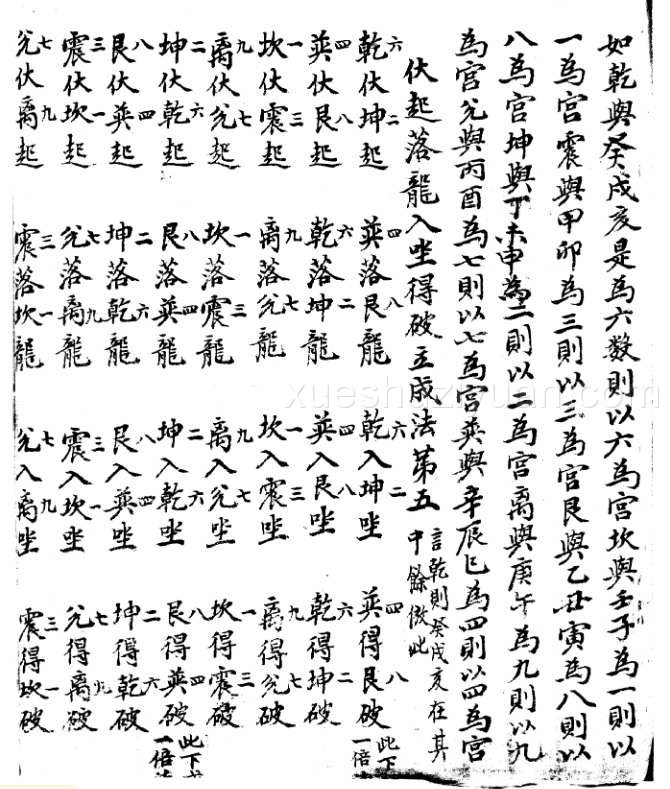 如乾與癸戌亥是為六数則以六為宮坎與壬子為一則以
一為宮震與甲卯為三則以三為宮艮與乙丑寅為八則以
八為宮坤與丁未申為二則以二為宮离與庚午為九則以九
為宮兊與丙酉為七則以七為宮巽與辛辰巳為四則以四為宮
伏起落龍入坐得破立成法第五
言乾則癸戌亥在其
中餘倣此
乾六伏坤二起 巽四落艮八龍 乾六入坤二坐 巽四得艮八破
此下
一倍
巽四伏艮八起 乾六落坤二龍 巽四入艮八坐 乾六得坤二破
坎一伏震三起 离九落兊七龍 坎一入震三坐 离九得兊七破
离九伏兊七起 坎一落震三龍 离九入兊七坐 坎一得震三破
坤二伏乾六起 艮八落巽四龍 坤二入乾六坐 艮八得巽四破
此下
一倍
艮八伏巽四起 坤二落乾六龍 艮八入巽四坐 坤二得乾六破
震三伏坎一起 兊七落离九龍 震三入坎一坐 兊七得离九破
兊七伏离九起 震三落坎一龍 兊七入离九坐 震三得坎一破
xueshuziyuan.com